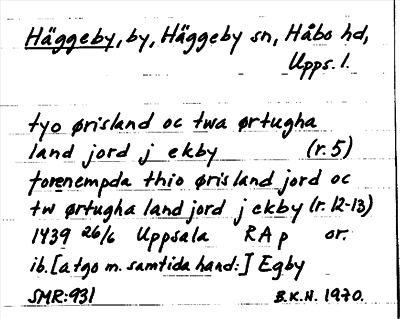 Häggeby, by, Häggeby sn, Håbo hd,
Upps. l.
tyo ørisland oc twa ørtugha
land jord j ekby (r. 5)
forenempda thio øris land jord oc
tw ørtugha land jord j ekby (r. 12-13)
1439 26/6 Uppsala RA p or.
ib. [atgo m. samtida hand:] Egby
SMR: 931 B.K.H. 1970.